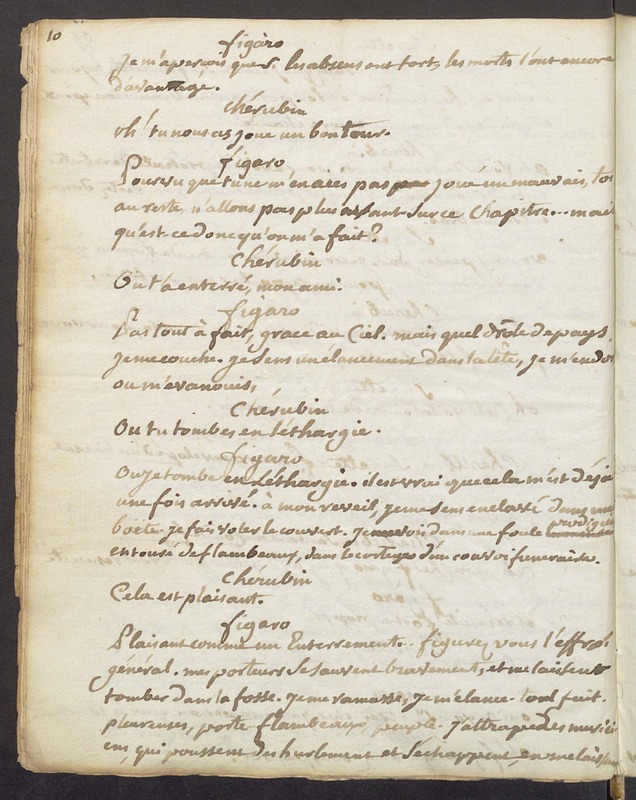 10
figaro
Je m'aperçois que si les absens ont tort, les morts l'ont encore
d'avantage.
Chérubin
oh! tu nous as joué un bon tour.
figaro
Pourvu que tu ne m'en aies pas joué un mauvais,
au reste, n'allons pas plus avant sur ce chapitre... mais
qu'est-ce donc qu'on m'a fait?
Chérubin
On t'a enterré, mon ami.
figaro
Pas tout à fait, grace au Ciel. mais quel drôle de pays,
je me couche. je sens un elancement dans la tête, je m'endors
ou m'evanouis,
Chérubin
Ou tu tombes en léthargie.
figaro
Ou je tombe en Léthargie. il est vrai que cela m'est déjà
une fois arrivé. à mon reveil, je me sens enclavé dans une
boete. je fais voler le couvert. je me vois dans une foule prodigieuse
entouré de flambeaux, dans le cortege d'un convoi funeraire.
Chérubin
Cela est plaisant.
figaro
Plaisant comme un Enterrement... figurez vous l'effroi
général. mes porteurs se sauvent bravement, et me laissent
tomber dans la fosse. je me ramasse, je m'élance. tout fuit.
pleureuses, porte flambeaux, peuple. J'attrape des musici
ens, qui poussent des hurlement et s'échappent, en me laissant